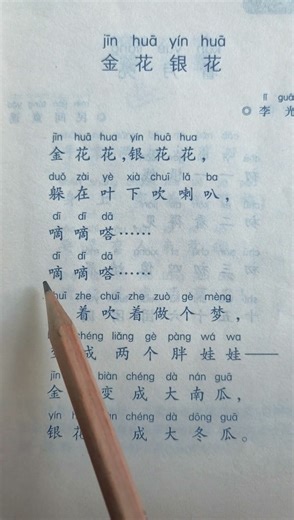 jīn huā yín huā
金花银花
lǐ guā
◎ 李光
jīn huā hua yín huā hua
金花花,银花花,
duǒ zài yè xià chuī lǎ ba
躲在叶下吹喇叭,
dī dī dā
嘀嘀嗒……
dī dī dā
嘀嘀嗒……
chuī zhe chuī zhe zuò gè mèng
着吹着做个梦,
chéng liǎng gè pàng wá wa
成两个胖娃娃——
jīn biàn chéng dà nán guā
金 变成大南瓜,
yín chéng dà dōng guā
银花 成大冬瓜。